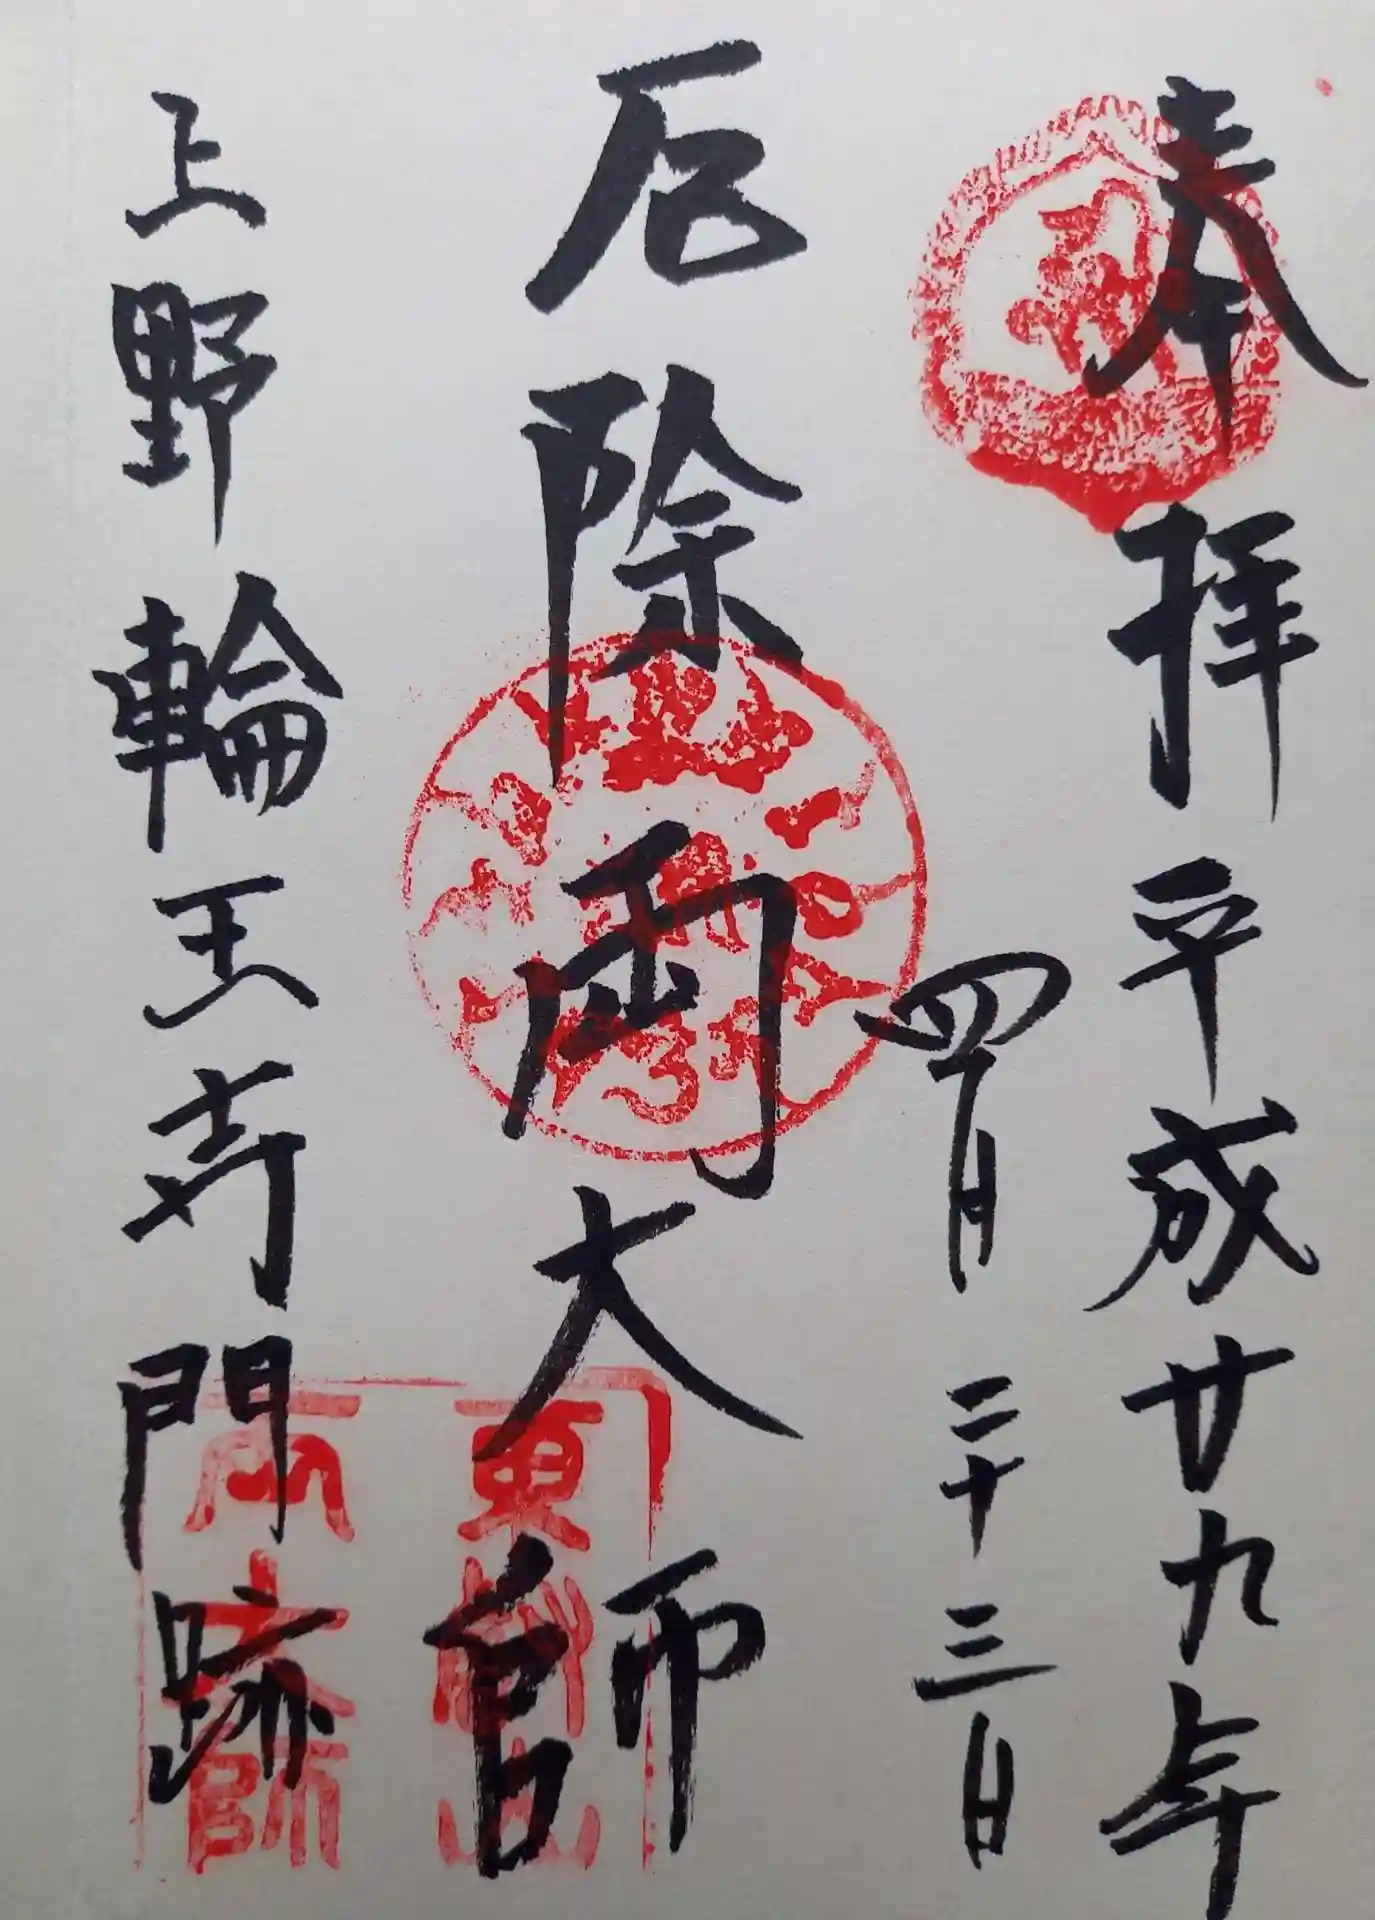 奉拝 平成廿九年
四月二十三日
厄除 両大師
上野輪王寺門跡
東叡山
両大師